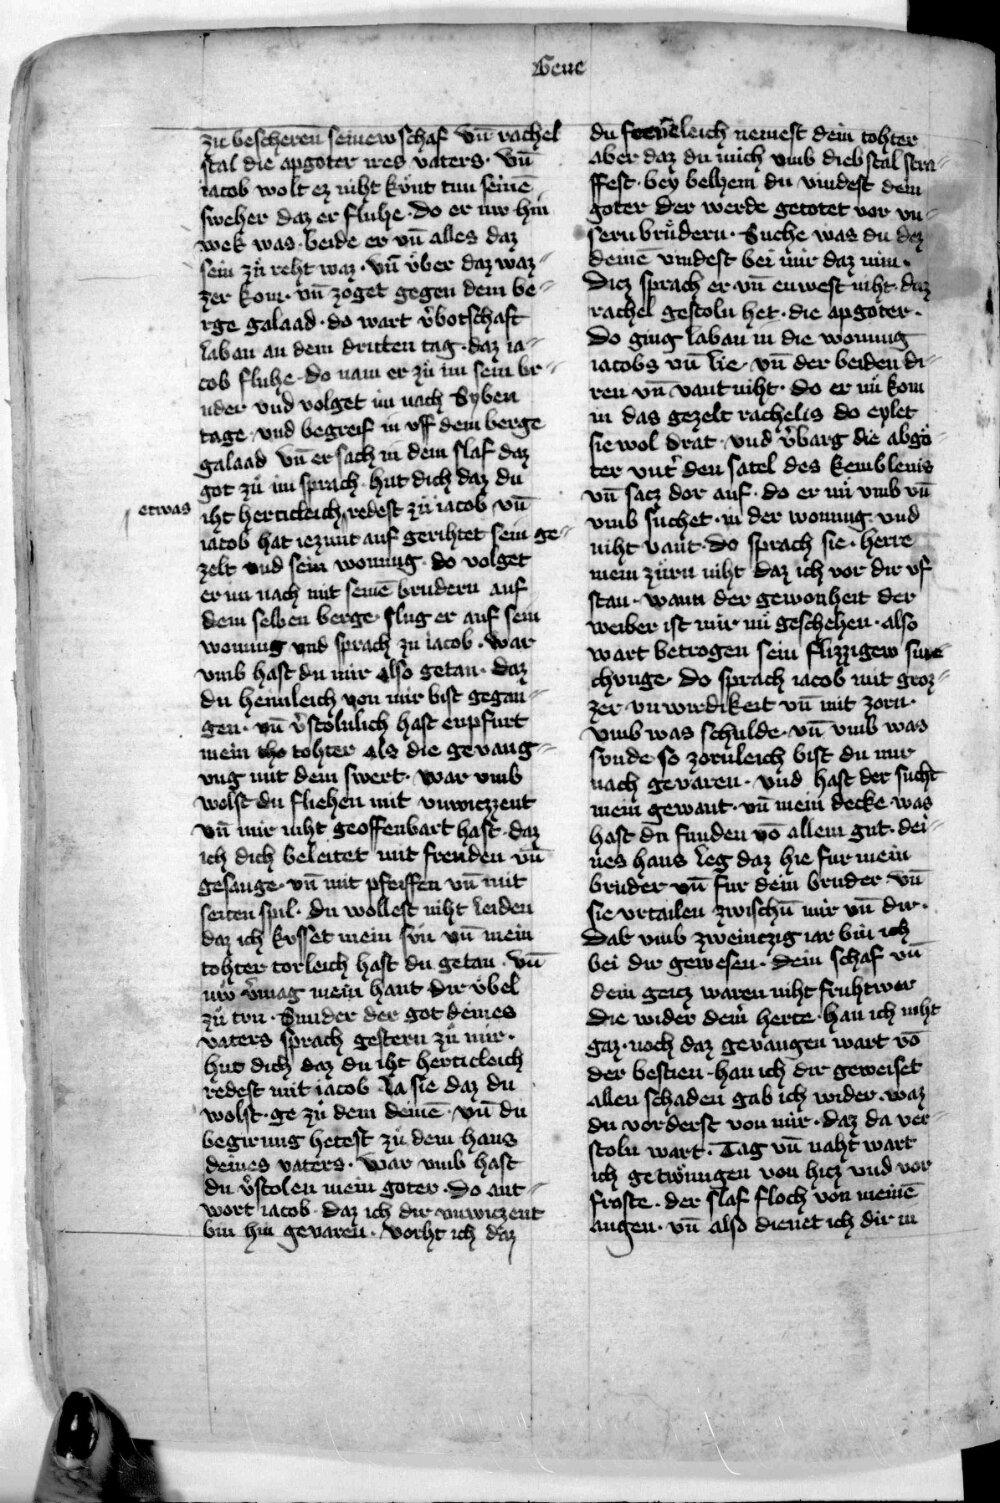 Gene
zu bescheren seinew schaf vn̄ rachel
stal die apgoter ires vaters · vn̄
iacob wolt ez niht kůnt tun seinē
sweher daz er fluhe · do er nw hin
wek was · beide er vn̄ alles daz
sein zů reht waz · vn̄ vͤber daz waz⸗
zer kom · vn̄ zoget gegen dem be⸗
rge galaad · do wart v̾botschaft
laban an dem dritten tag · daz ia⸗
cob fluhe · do nam er zů im sein br⸗
uder vnd volget im nach syben
tage · vnd begreif in vff dem berge
galaad vn̄ er sach in dem slaf daz
got zů im sprach · hut dich daz du
etwas
iht herticleich redest zů iacob · vn̄
iacob hat iezunt auf gerihtet sein ge⸗
zelt vnd sein wonung · do volget
er im nach mit seinē brudern auf
dem selben berge · slug er auf sein
wonung vnd sprach zu iacob · war
vmb hast du mir also getan · daz
du heimleich von mir bist gegan⸗
gen · vn̄ v̾stolnlich hast enpfurt
mein tho tohter als die gevang⸗
vng mit dem swert · war vmb
wolst du fliehen mit vnwiczzent
vn̄ mir niht geoffenbart hast · daz
ich dich beleitet mit freuden vn̄
gesange · vn̄ mit pfeiffen vn̄ mit
seiten spil · du wollest niht leiden
daz ich kvsset mein svn vn̄ mein
tohter torleich hast du getan · vn̄
nw v̾mag mein hant dir vͤbel
zů tvn · Sunder der got deines
vaters sprach gestern zů mir ·
hut dich daz du iht herticleich
redest mit iacob la sie daz du
wolst · ge zu dem deinē · vn̄ du
begirung hetest zů dem haus
deines vaters · war vmb hast
du v̾stolen mein goter · do ant⸗
wort iacob · daz ich dir vnwiczent
bin hin gevaren · vorht ich daz
du freueleich nemest dein tohter
aber daz du mich vmb diebstal stra⸗
ffest · bey welhem du vindest dein
goter der werde getotet vor vn⸗
sern brůdern · Suche was du dez
deinē vindest bei mir daz nim ·
Dicz sprach er vn̄ enwest niht daz
rachel gestoln het · die apgoter ·
Do ging laban in die wonung
iacobs vn̄ lie · vn̄ der beiden di⸗
ren vn̄ vant niht · do er nů kom
in das gezelt rachelis do eylet
sie wol drat · vnd v̾barg die abgo⸗
ter vnt̾ den satel des kemblenis
vn̄ sacz dor auf · do er nů vmb vn̄
vmb suchet · in der wonung vnd
niht vant · do sprach sie · herre
mein zůrn niht daz ich vor dir vf
stan · wann der gewonheit der
weiber ist mir nů geschehen · also
wart betrogen sein flizzigew sue⸗
chvnge · do sprach iacob mit groz⸗
zer vnwirdikeit vn̄ mit zorn ·
vmb was schulde · vn̄ vmb was
svnde so zornleich bist du mir
nach gevaren · vnd hast der sucht
mein gewant · vn̄ mein decke was
hast du funden vō allem gut · dei⸗
nes haus leg daz hie fur mein
bruder vn̄ fur dein bruder · vn̄
sie vrtailen zwischn̄ mir vn̄ dir ·
Dar vmb zweinczig iar bin ich
bei dir gewesen · dein schaf vn̄
dein geicz waren niht fruhtwer
die wider deinr herte · han ich niht
gaz · noch daz gevangen wart vō
der bestien · han ich dir geweiset
allen schaden gab ich wider · waz
du vorderst von mir · daz da ver⸗
stoln wart · Tag vn̄ naht wart
ich getwungen von hicz vnd vor
froste · der slaf floch von meinē
augen · vn̄ also dienet ich dir in